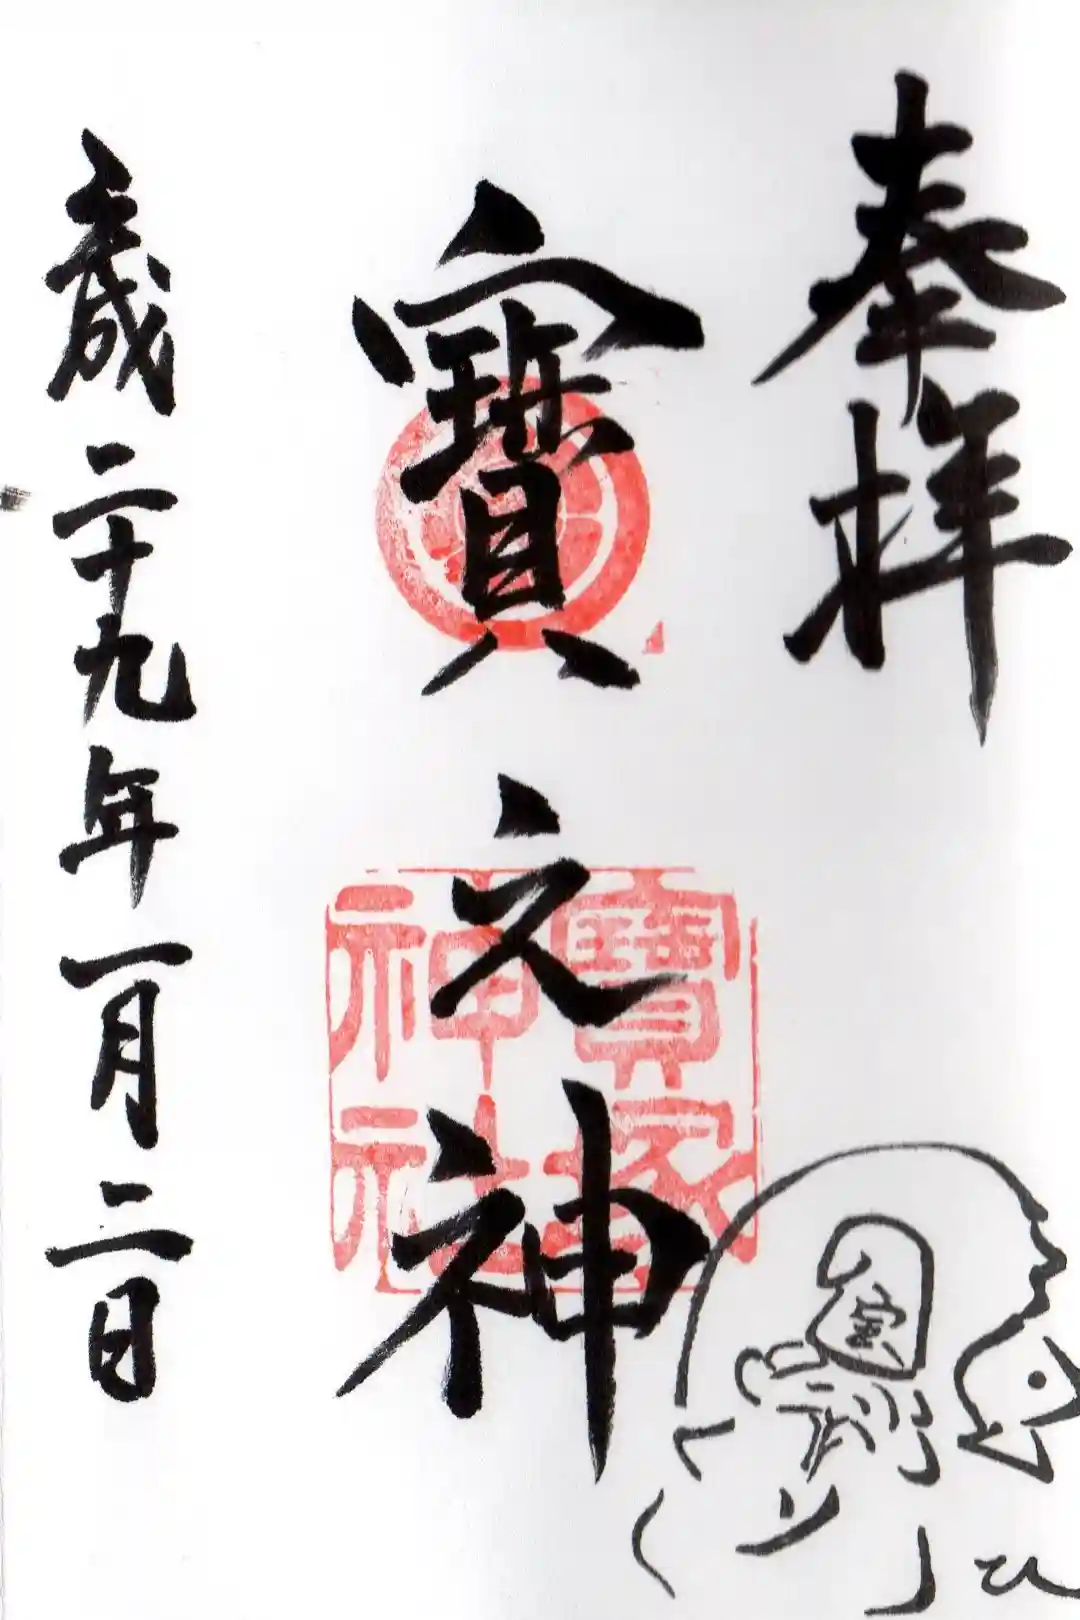 奉拝
寳之神
寳塚
神社
歳二十九年一月二日
宝